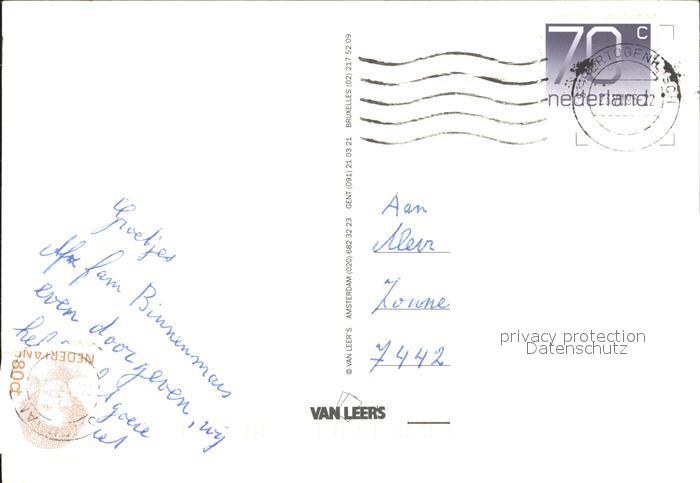 70 c
nederland
Groetjes
Afz fam Binnenmars
even doorgeven, wij
goeie
NEDERLAND
80ct
© VAN LEER'S AMSTERDAM (020) 682 32 23 GENT (091) 21 03 21 BRUXELLES (02) 217 52 09
Aan
Mevr
Zonne
7442
privacy protection
Datenschutz
VAN LEER'S